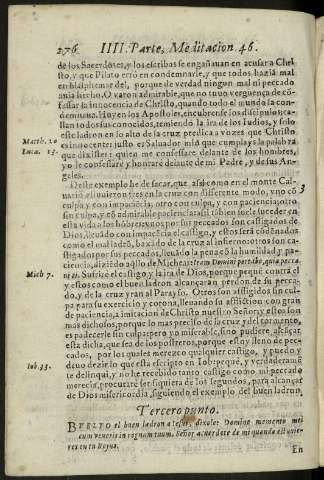 276. IIII. Parte, Meditacion 46.
de los Sacerdotes, y los escribas se engañauan en acusar a Chri
sto, y que Pilato erró en condemnarle, y que todos hazia mal
en blasphemar del, porque de verdad ningun mal ni peccado
auia hecho. O varon admirable, que no tuuo verguença de cō-
fessar la innocencia de Christo, quando todo el mundo la con-
demnaua. Huyen los Apostoles, encubrense los discipulos: ca-
llan todos sus conocidos, temiendo la ira de los Iudios, y solo
este ladron en lo alto de la cruz predica a vozes que Christo
es innocente: justo es Saluador mio que cumplays la palabra
que dixistes: quien me confessare delante de los hombres,
yo le confessare y honraré delante de mi Padre, y de sus An-
geles.
Matth. 10
Lucæ. 15.
Deste exemplo he de sacar, que assi como en el monte Cal-
uario estuuieron tres en la cruz con differente modo, vno cō
culpa, y con impaciencia; otro con culpa, y con paciencia; otro
sin culpa, y cō admirable paciencia: assi tābien suele suceder en
esta vida a los hōbres: vnos por sus peccados son castigados de
Dios, lleuādo con impaciēcia el castigo, y estos será cōdenados
como el mal ladrō, baxādo de la cruz al infierno: otros son ca-
stigados por sus peccados, lleuādo la pena cō la humildad y pa-
ciencia, diziēdo aquello de Micheas: Iram Domini portabo, quia pecca-
ui ei. Sufriré el castigo y la ira de Dios, porque pequé contra el
y estos como el buen ladron alcançaran perdon de su pecca-
do, y de la cruz yran al Parayso. Otros son afligidos sin cul-
pa para su exercicio y corona, lleuando su afflicion con gran-
de paciencia, a imitacion de Christo nuestro Señor; y estos son
mas dichosos, porque lo mas precioso de la cruz y del tormento,
es padecerle sin culpa: pero yo miserable, sino pudiere alcāçar
esta dicha, que sea de los postreros, porque estoy lleno de pec-
cados, por los quales merezco qualquier castigo, y puedo y
deuo dezir lo que esta escripto en Iob: pequé, y verdaderamē
te delinquí, y no he recebido tanto castigo como mi peccado
merecia, procuraré ser siquiera de los segundos, para alcançar
de Dios misericordia, siguiendo el exemplo del buen ladron.
Mich 7.
Iob. 33.
3
Tercero punto.
BVELTO el buen ladron a Iesus, dixole: Domine memento mei
cum veneris in regnum tuum. Señor acuerdate de mi quando estuuie-
res en tu Reyno.
En